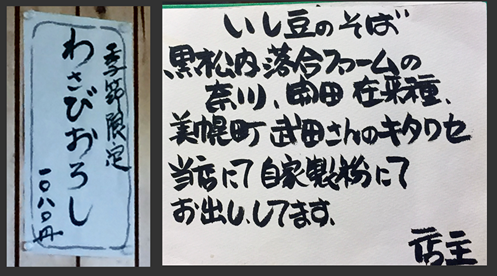 季節限定
わさびおろし
一〇八〇円
いし豆のそば
黒松内落合ファームの
奈川、在来種、
美幌町 武田さんのキタワセ
当店にて自家製粉にて
お出ししてます。
店主